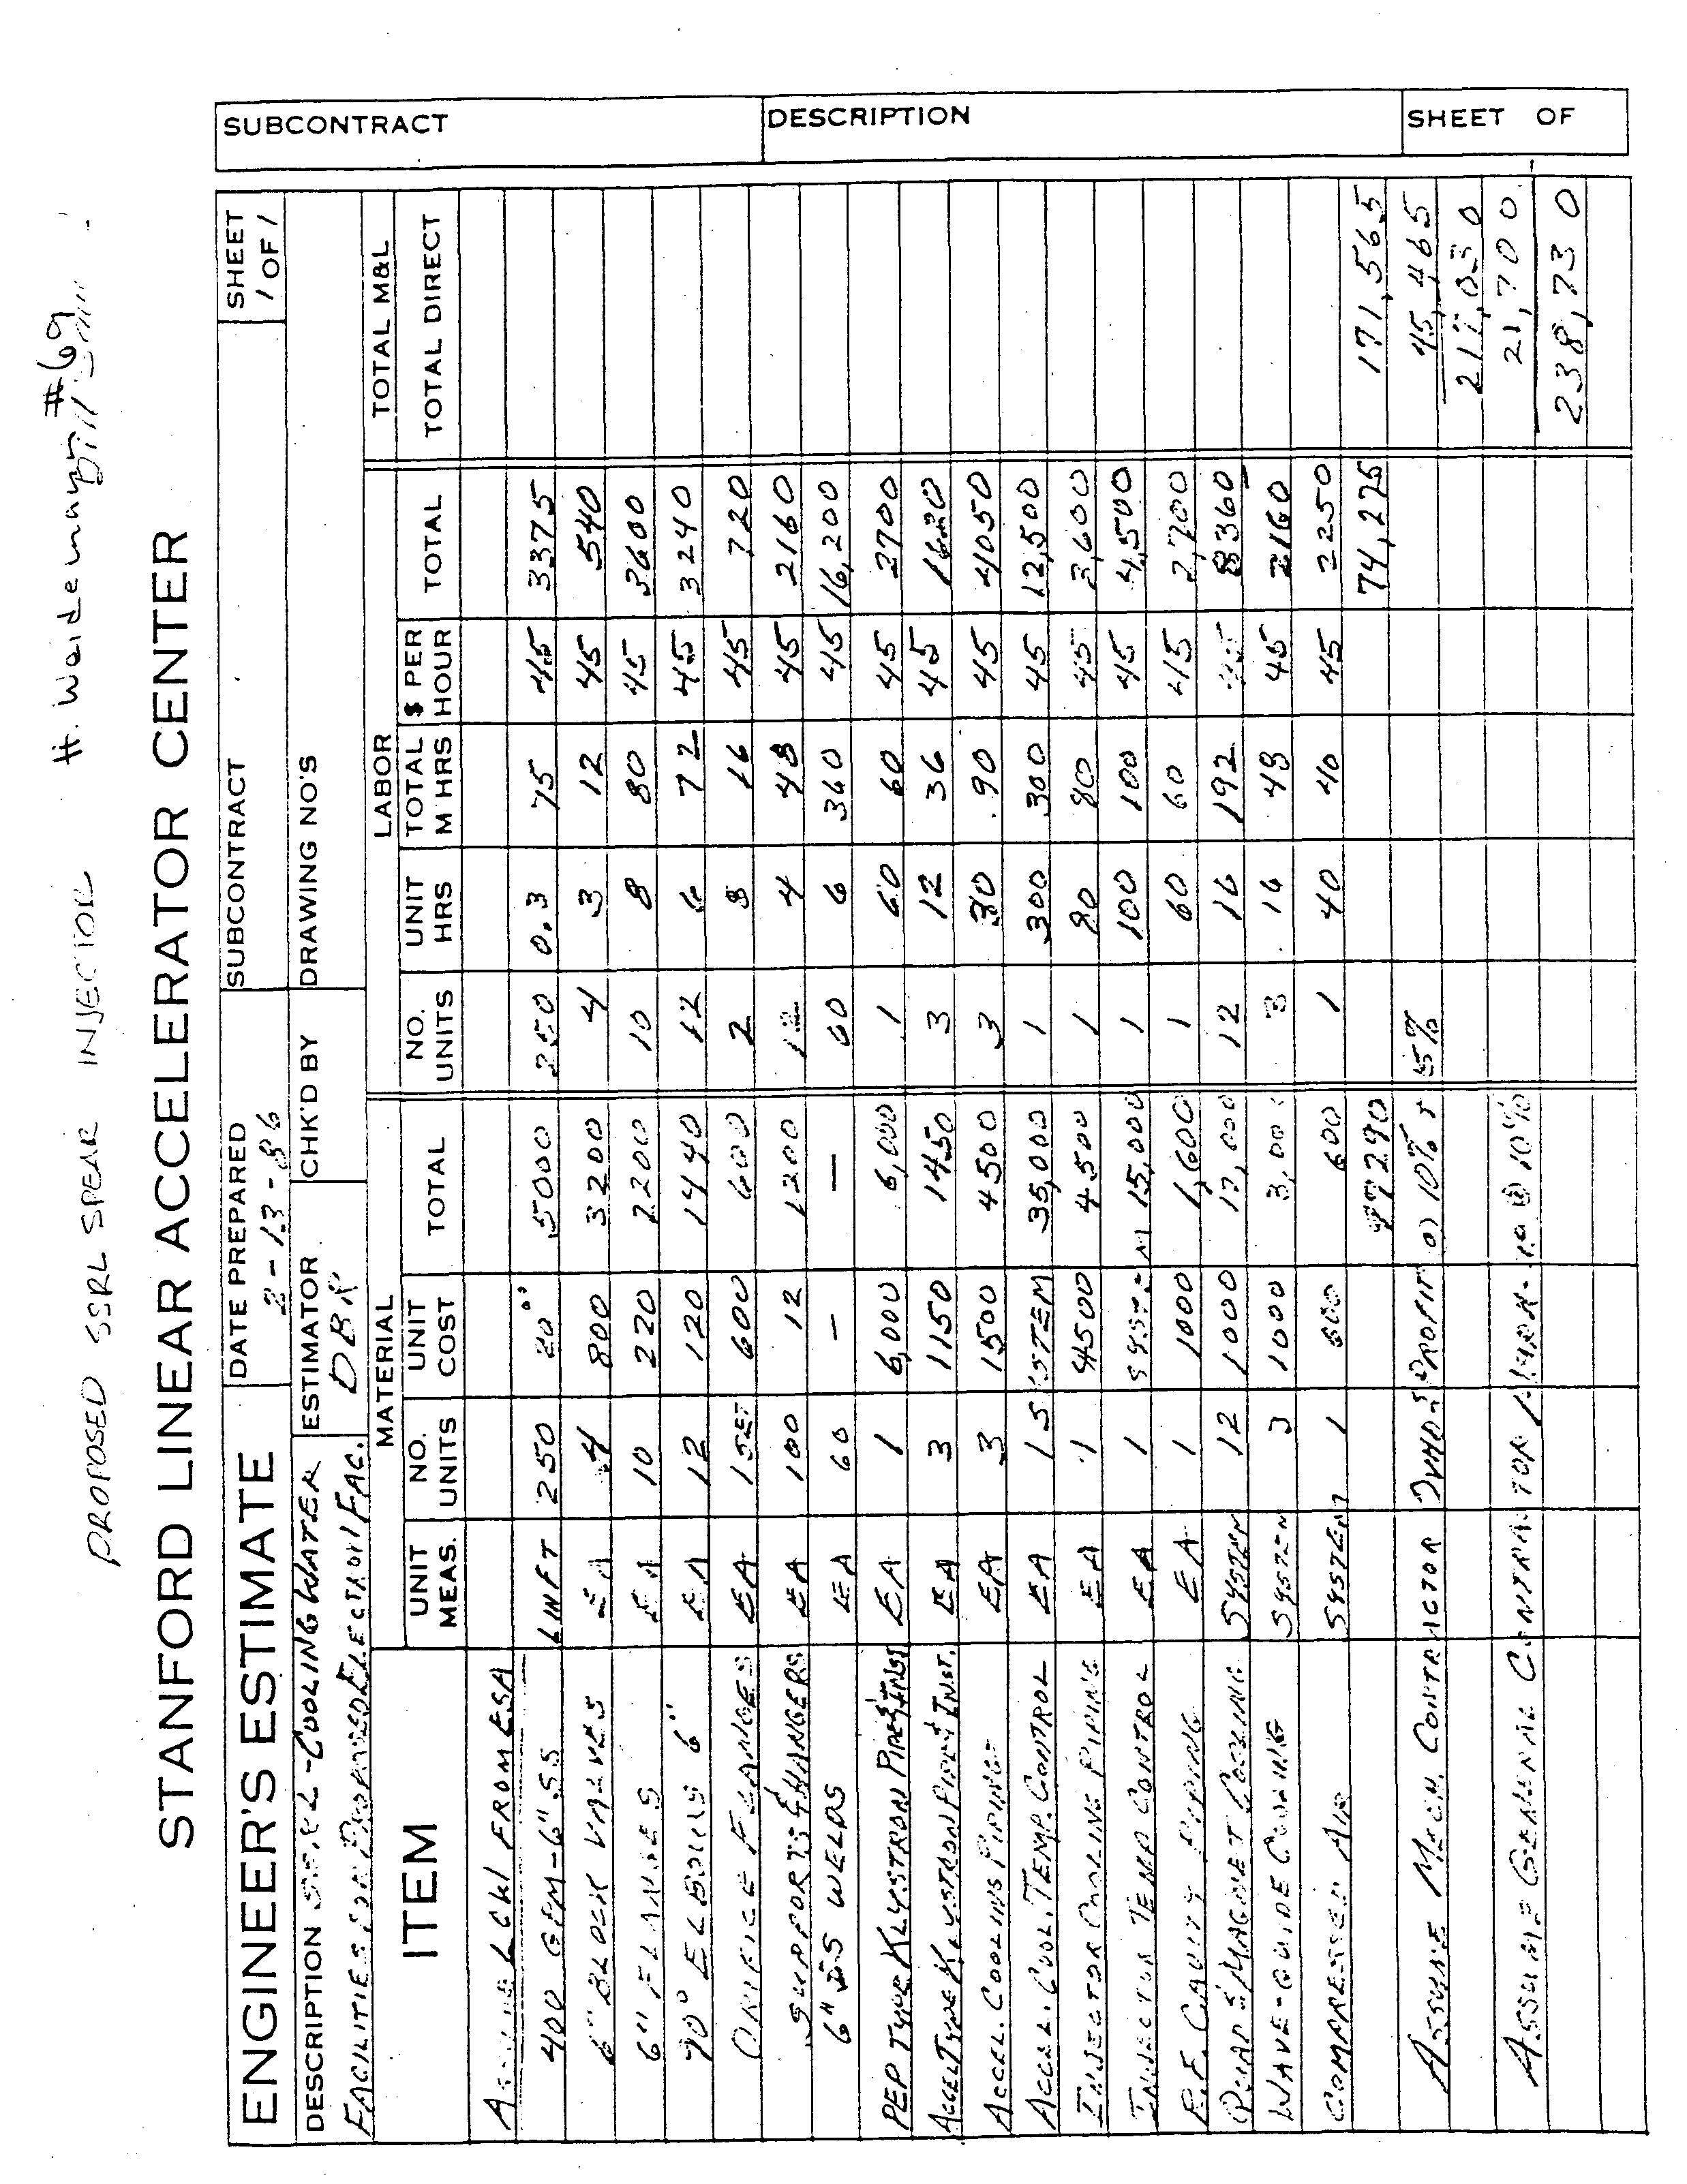 H. Weidemann #69
PROPOSED SSRL SPEAR INJECTOR
STANFORD LINEAR ACCELERATOR CENTER
ENGINEER'S ESTIMATE DATE PREPARED 2-13-86 SUBCONTRACT SHEET 1 OF 1
DESCRIPTION COOLING WATER ESTIMATOR DBR CHK'D BY DRAWING NO'S
FACILITIES FOR PROPOSED ELECTRON FAC.
MATERIAL LABOR TOTAL M&L
ITEM UNIT MEAS. NO. UNITS UNIT COST TOTAL NO. UNITS UNIT HRS TOTAL M HRS $ PER HOUR TOTAL TOTAL DIRECT
LCW FROM ESA
400 GPM-6"SS LINFT 250 20 5000 250 0.3 75 45 3375
6" BLOCK VALVES EA 4 800 3200 4 3 12 45 540
6" FLANGES EA 10 220 2200 10 8 80 45 3600
90° ELBOWS 6" EA 12 120 1440 12 6 72 45 3240
ORIFICE FLANGES EA 1 SET 600 600 2 8 16 45 720
SUPPORTS & HANGERS EA 100 12 1200 12 4 48 45 2160
6" SS WELDS EA 60 — — 60 6 360 45 16,200
PEP TYPE KLYSTRON PIPE & INST EA 1 6,000 6,000 1 60 60 45 2700
ACCEL TYPE KLYSTRON PIPE & INST. EA 3 1150 1450 3 12 36 45 1620
ACCEL. COOLING PIPING EA 3 1500 4500 3 30 90 45 4050
ACCEL. COOL. TEMP. CONTROL EA 1 SYSTEM 35,000 1 300 300 45 12,500
INJECTOR COOLING PIPING EA 1 4500 4500 1 80 80 45 3,600
INJECTOR TEMP CONTROL EA 1 SYSTEM 15,000 1 100 100 45 4,500
R.F. CAVITY PIPING EA 1 1000 1,600 1 60 60 45 2,700
QUAD & MAGNET COOLING SYSTEM 12 1000 12,000 12 16 192 45 8360
WAVE-GUIDE COOLING SYSTEM 3 1000 3,000 3 16 48 45 2160
COMPRESSED AIR SYSTEM 1 600 600 1 40 40 45 2250
97290 74,275 171,565
ASSUME MECH. CONTRACTOR OVHD & PROFIT @ 10% + 15% 45,465
217,030
ASSUME GENERAL CONTRACTOR MARK-UP @ 10% 21,700
238,730
SUBCONTRACT DESCRIPTION SHEET OF